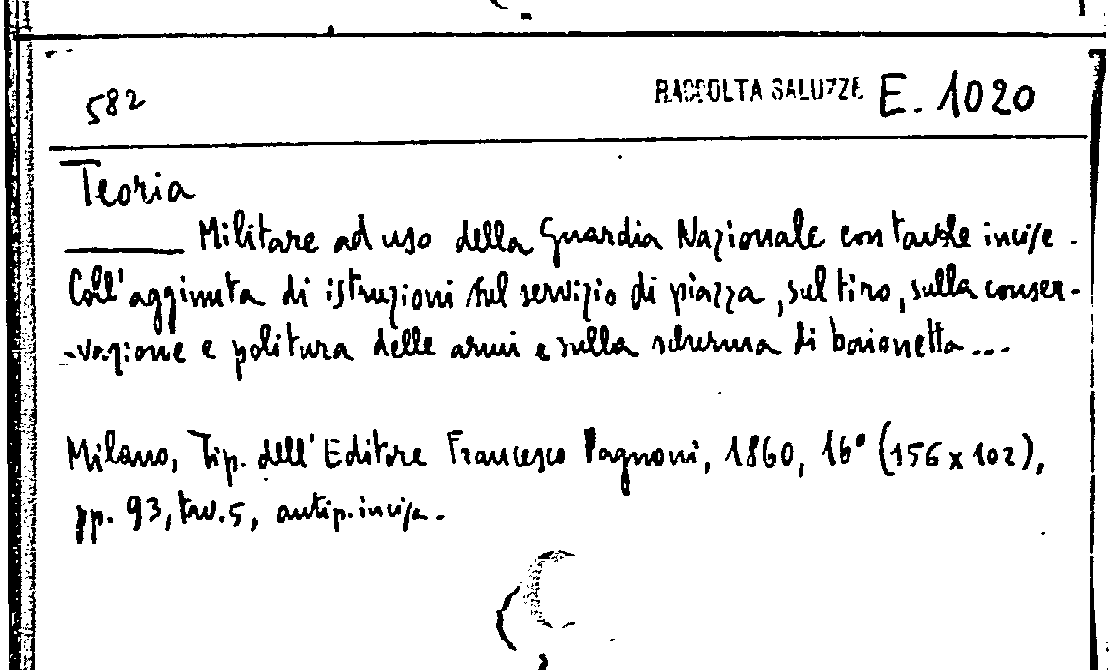 582
RACCOLTA SALUZZE E. 1020
Teoria
Militare ad uso della Guardia Nazionale con tavole incise.
Coll'aggiunta di istruzioni sul servizio di piazza, sul tiro, sulla conser-
-vazione e politura delle armi e sulla scherma di baionetta...
Milano, Tip. dell'Editore Francesco Pagnoni, 1860, 16° (156 x 102),
pp. 93, tav. 5, antip. incisa.